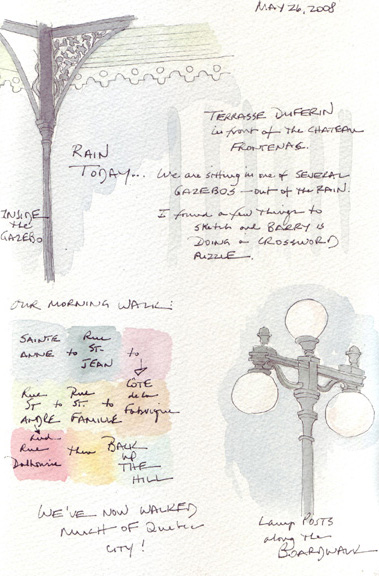 MAY 26, 2008
TERRASSE DUFERIN
in front of the CHATEAU
FRONTENAC.
RAIN
TODAY... We are sitting in one of SEVERAL
GAZEBOS — out of the RAIN.
I found a few things to
sketch and BARRY is
DOING a CROSSWORD
PUZZLE.
INSIDE
the
GAZEBO
OUR MORNING WALK:
SAINTE
ANNE to Rue
ST-
JEAN to
CÔTE
de la
Fabrique
Rue
ST
ANDRE to Rue
ST.
FAMILLE to
and
Rue
Dalhousie then BACK
up
THE
HILL
WE'VE NOW WALKED
much OF Quebec
CITY!
Lamp POSTS
along the
BOARDWALK